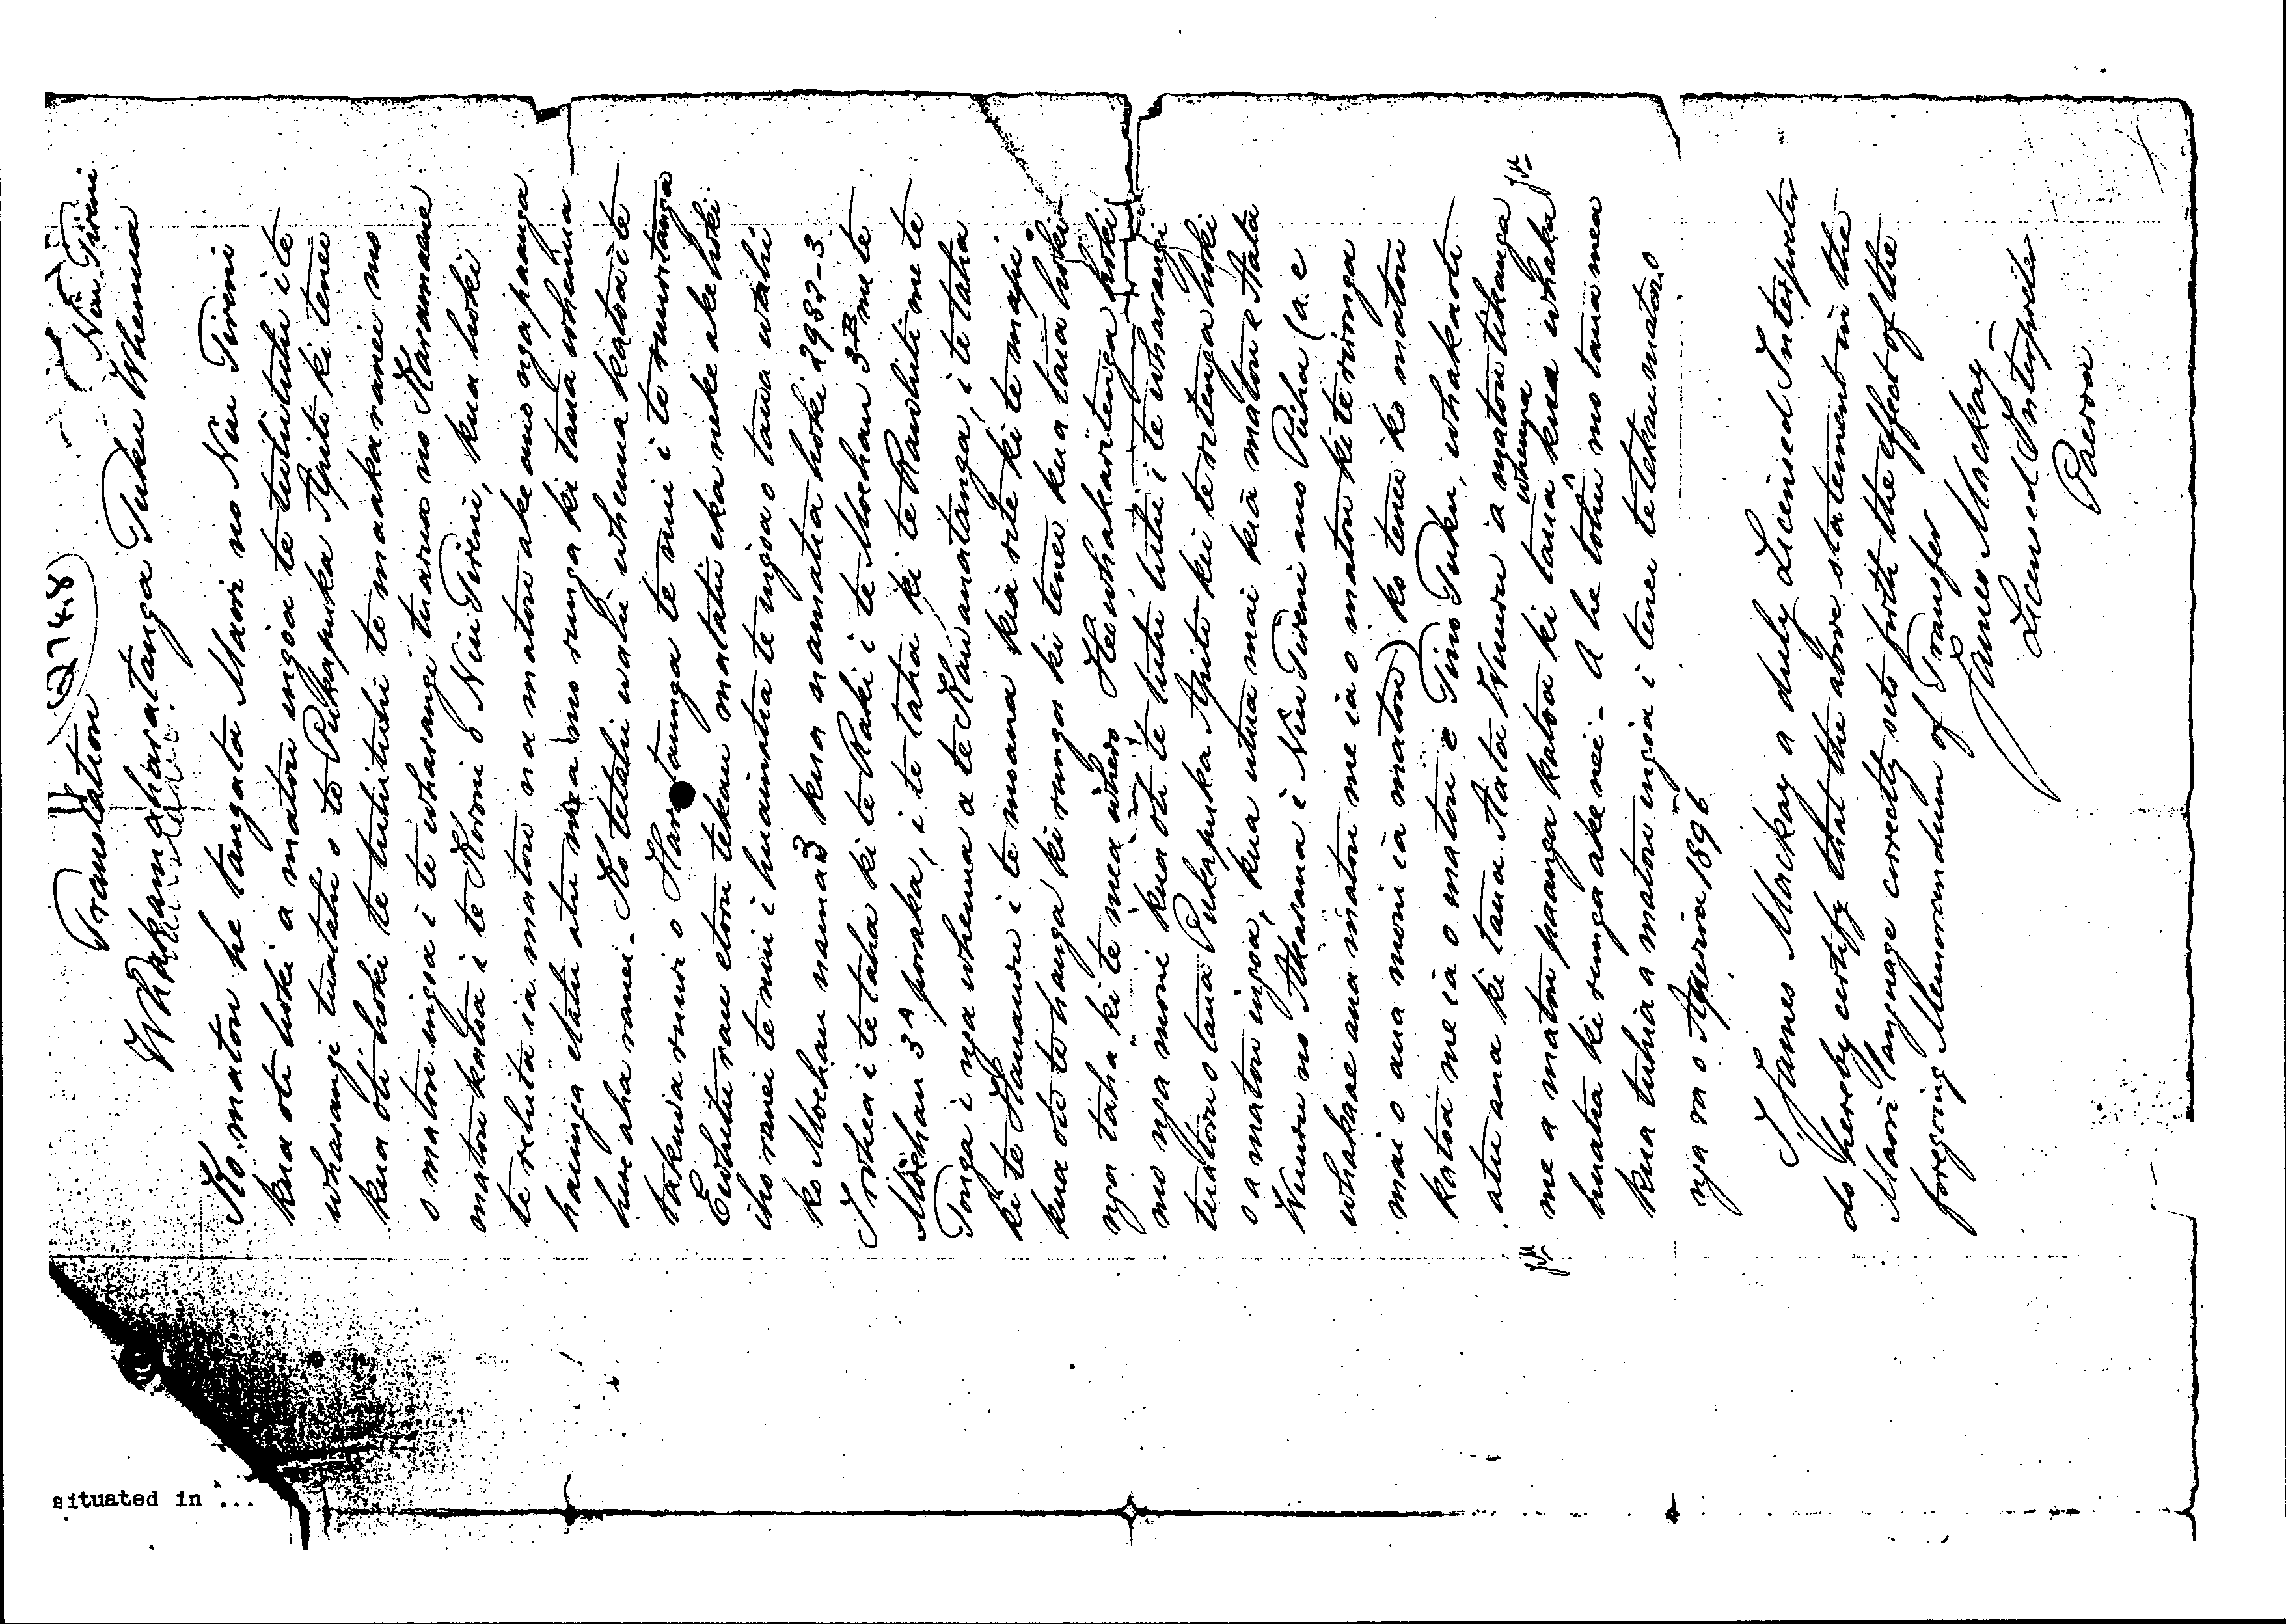 2748
Translation
Niu Tireni
Whakamaharatanga Tuku Whenua
Ko matou he tangata Maori no Niu Tireni
kua oti hoki a matou ingoa te tuhituhi i te
wharangi tuatahi o te Pukapuka Apiti ki tenei
kua oti hoki te tuhituhi te maakaranei mo
o matou ingoa i te wharangi tuarua no Haramaene
matou katoa i te Koroni o Niu Tireni, kua hoki
te rehuta ia matou na matou ake ano nga paanga
hainga etahi atu mea mo runga ki taua whenua
hure aha ranei - Ko tetahi wahi whenua katoa i te
takiwa ruri o Har taunga te nui i te ruuritanga
Ewhitu rau etoru tekau matahi eka neke ake hoki
iho ranei te nui i huaintia te ingoa o taua wahi
ko Moehau nama 3 kua namatia hoki 2982-3
I rohea i te taha ki te Raki i te Moehau 3B me te
Moehau 3A poraka, i te taha ki te Rawhiti me te
Tonga i nga whenua a te Kawanatanga, i te taha
ki te Hauauru i te moana kia rite ki te mapi
kua oti te hanga ki runga ki tenei kua taua hoki
nga taha ki te mea whero Heu whakaritenga hoki
mo nga moni kua oti te tuhi tuhi i te wharangi
tuatoru o taua Pukapuka Apiti ki te ritenga hoki
o a matou ingoa, kua utua mai kia matou e Aata
Wuuru no Akarana i Niu Tireni ano Piiha (a e
whakaae ana matou me ia o matou ki te riringa
mai o aua moni ia matou) ko tenei ko matou
katoa me ia o matou e Tino Tuku, whakaoti
atu ana ki taua Aata Wuuru a matou tikanga
me a matou paanga katoa ki taua whenua kua whaka
huatia ki runga ake nei - A he tohu no taua mea
kua tuhia a matou ingoa i tenei te tekau matoru o
nga ra o Aperira 1896
I James Mackay a duly Licensed Interpreter
do hereby certify that the above statement in the
Maori language correctly sets forth the effect of the
foregoing Memorandum of Transfer
James Mackay
Licensed Interpreter
Paeroa
situated in ...